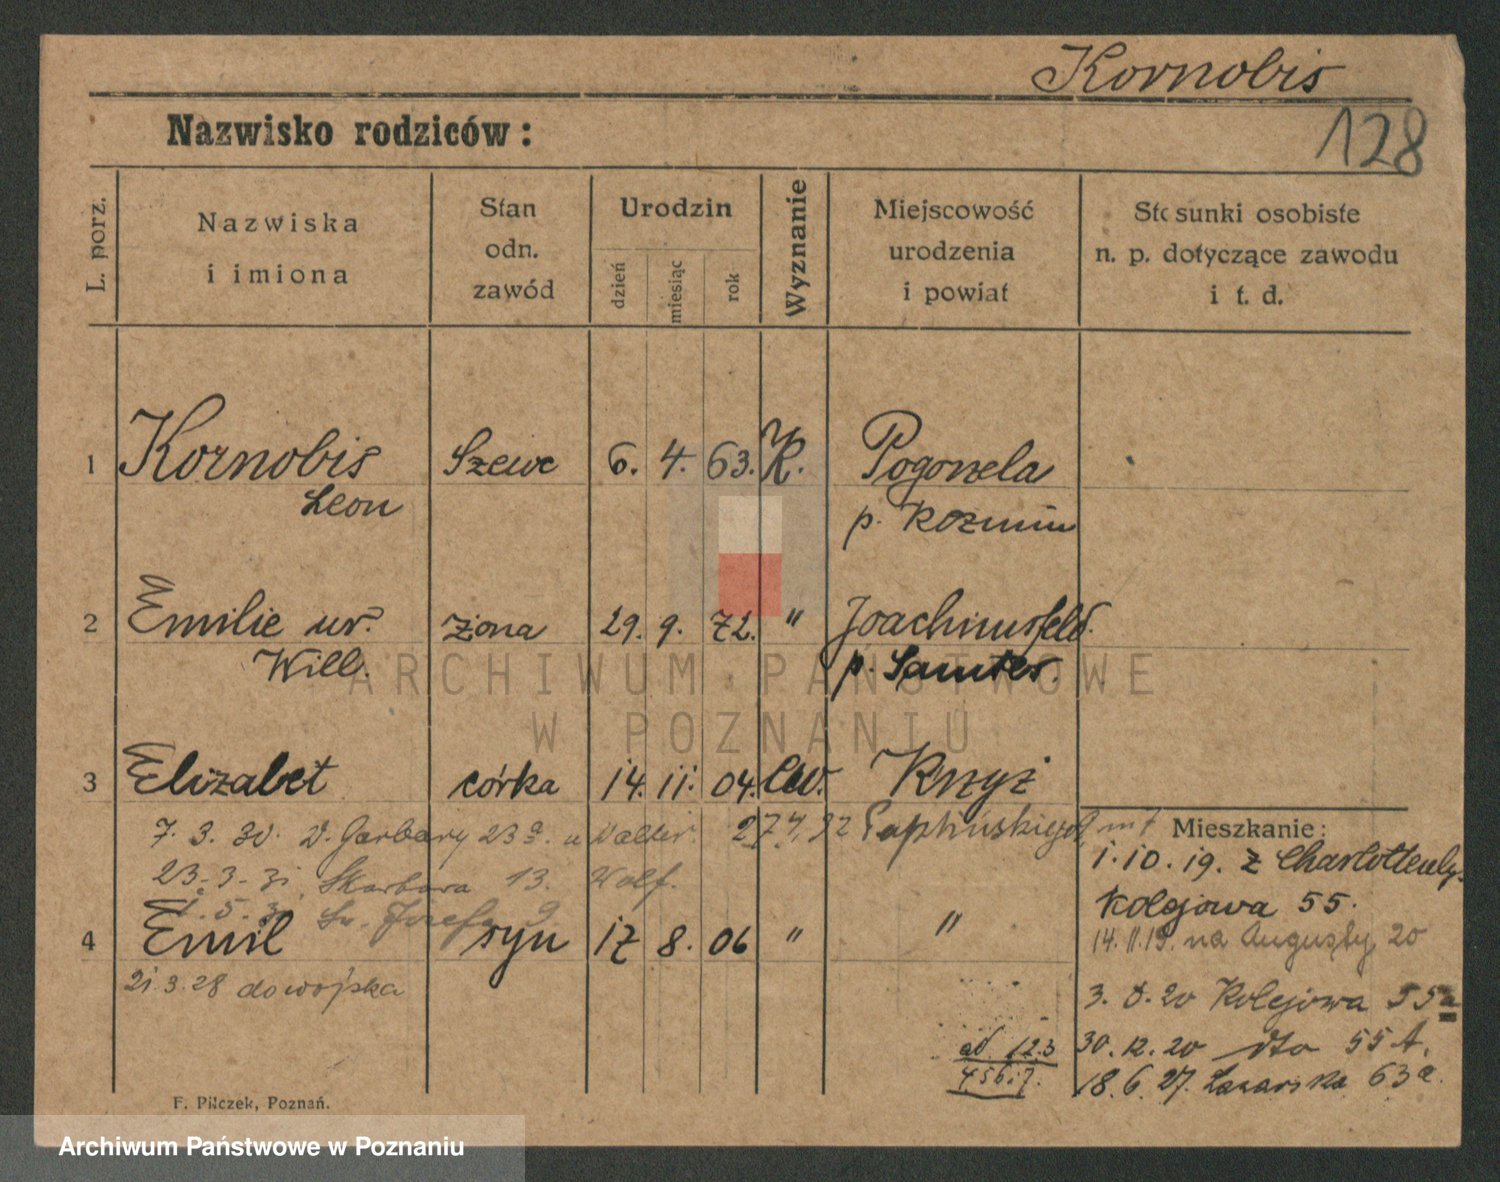 Kornobis
128
Nazwisko rodziców:
L. porz.
Nazwiska i imiona
Stan odn. zawód
Urodzin
dzień miesiąc rok
Wyznanie
Miejscowość urodzenia i powiat
Stosunki osobiste n. p. dotyczące zawodu i t. d.
1 Kornobis Szewc 6. 4. 63. K. Pogorzela
Leon p. Kozmin
2 Emilie ur. żona 29. 9. 72. " Joachimsfeld.
Will. p. Samter.
ARCHIWUM PAŃSTWOWE
W POZNANIU
3 Elizabet córka 14. 11. 04. Ew. Knyż
7. 3. 30. Garbary 23a. u Walter. 27.4.32
23-3-31 Skarbowa 13. Wolf.
1. 5. 31 Św. Józefa 9
4 Emil syn 17 8. 06 " "
21.3.28 do wojska
Mieszkanie:
1.10.19. z Charlottenbg.
Kolejowa 55.
14.11.19. na Augusty 20
3. 8. 20 Kolejowa 55a
30.12.20 dto 55 A.
18.6.27. Łazarska 63a.
ad. 123
456i7.
F. Pilczek, Poznań.
Archiwum Państwowe w Poznaniu